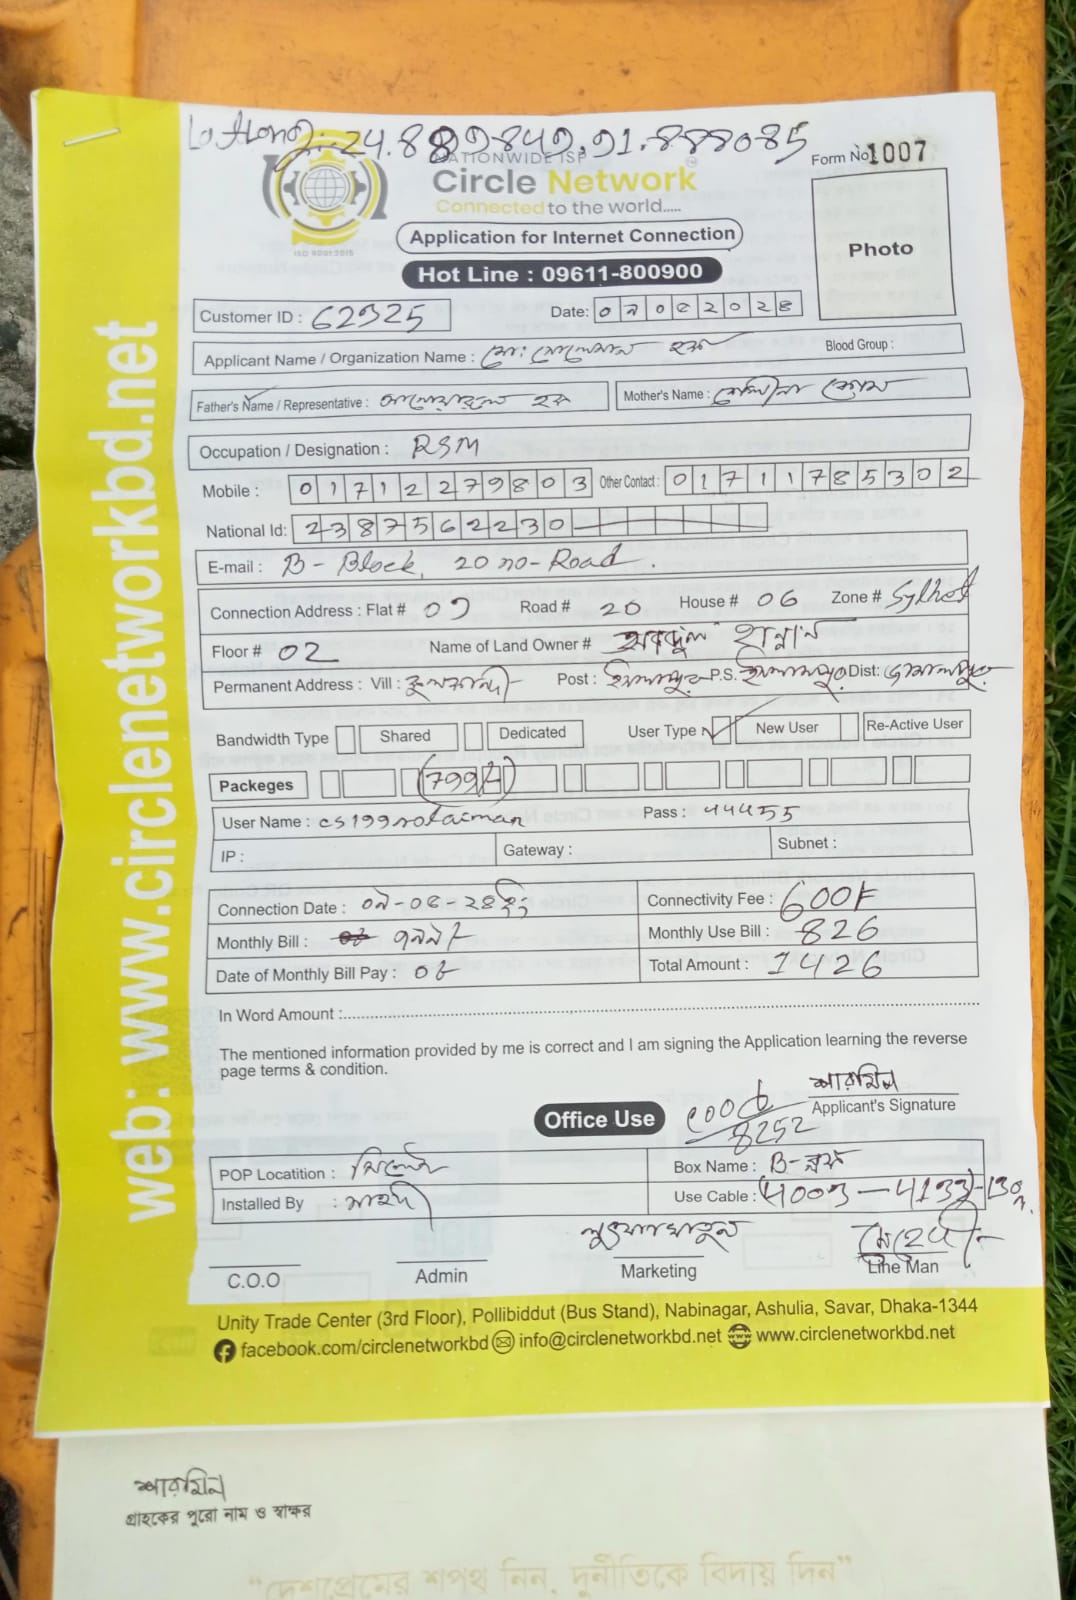 NATIONWIDE ISP
Form No 1007
Circle Network
Connected to the world.....
ISO 9001:2015
Application for Internet Connection
Hot Line : 09611-800900
Photo
Customer ID : 62325
Date:
Applicant Name / Organization Name : মো: সোলেমান হক
Blood Group :
Father's Name / Representative : আনোয়ারুল হক
Mother's Name : বেগম
Occupation / Designation : RSM
Mobile : 01712279803 Other Contact : 01711785302
National Id: 2387562230
E-mail : B - Block, 20 no - Road.
Connection Address : Flat # 01 Road # 20 House # 06 Zone # Sylhet
Floor # 02 Name of Land Owner # আব্দুল হান্নান
Permanent Address : Vill : Post : ইসলামপুর P.S. ইসলামপুর Dist: জামালপুর
Bandwidth Type Shared Dedicated User Type New User Re-Active User
Packeges 799/-
User Name : Pass : 44455
IP : Gateway : Subnet :
Connection Date : ০৯-০৫-২৪ইং Connectivity Fee : 600/-
Monthly Bill : ৭৯৯/- Monthly Use Bill : 826
Date of Monthly Bill Pay : Total Amount : 1426
In Word Amount :
The mentioned information provided by me is correct and I am signing the Application learning the reverse
page terms & condition.
শারমিন
Applicant's Signature
Office Use
8252
POP Locatition : সিলেট Box Name : B-ব্লক
Installed By : মাহদী Use Cable :
C.O.O Admin Marketing Line Man
Unity Trade Center (3rd Floor), Pollibiddut (Bus Stand), Nabinagar, Ashulia, Savar, Dhaka-1344
facebook.com/circlenetworkbd info@circlenetworkbd.net www.circlenetworkbd.net
web: www.circlenetworkbd.net
শারমিন
গ্রাহকের পুরো নাম ও স্বাক্ষর
“দেশপ্রেমের শপথ নিন, দুর্নীতিকে বিদায় দিন”